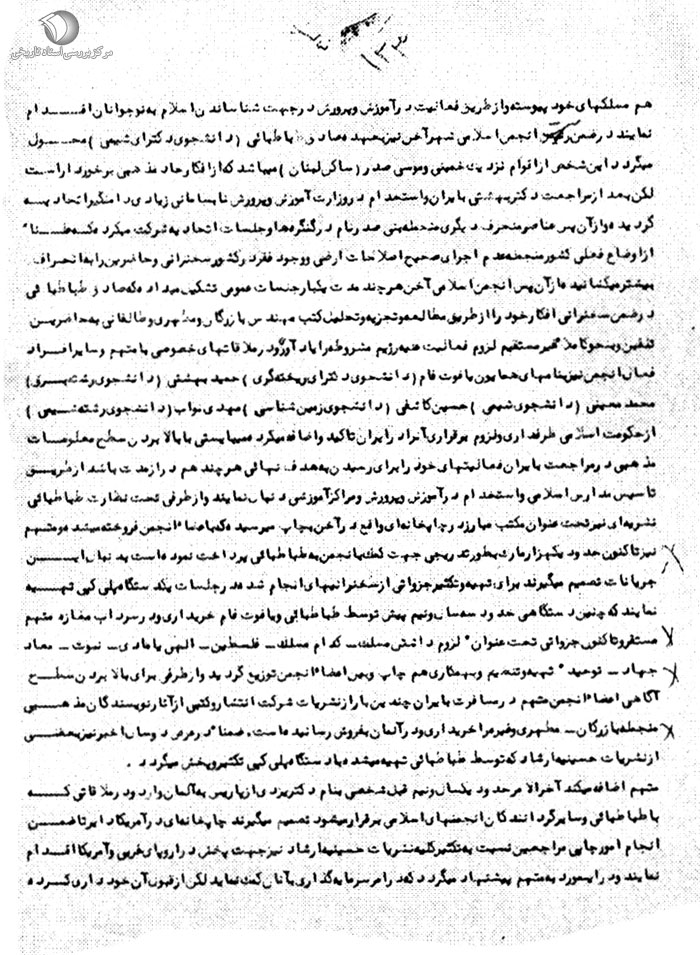 مرکز بررسی اسناد تاریخی
هم مسلکهای خود پیوسته و از طریق فعالیت در آموزش و پرورش در جهت شناساندن اسلام به نوجوانان اقدام
نمایند در ضمن انجمن اسلامی شهر آخن نیز بعهده صادق طباطبائی (دانشجوی دکترای شیمی) محول
میگردد این شخص از اقوام نزدیک خمینی و موسی صدر (ساکن لبنان) میباشد که از افکار حاد مذهبی برخوردار است
لکن بعد از مراجعت دکتر بهشتی بایران و استخدام در وزارت آموزش و پرورش نابسامانی زیادی دامنگیر اتحادیه
گردیده و از آن پس عناصر منحرف دیگری منجمله بنی صدر نام در کنگره ها و جلسات اتحادیه شرکت میکرد که ضمنا"
از اوضاع فعلی کشور منجمله عدم اجرای صحیح اصلاحات ارضی و وجود فقر در کشور سخنرانی و حاضرین را به انحراف
بیشتر میکشانیده از آن پس انجمن اسلامی آخن هر چند مدت یکبار جلسات عمومی تشکیل میداد که صادق طباطبائی
در ضمن سخنرانی افکار خود را از طریق مطالعه و تجزیه و تحلیل کتب مهندس بازرگان و مطهری و طالقانی به حاضرین
تلقین و بنحو کاملا" غیر مستقیم لزوم فعالیت علیه رژیم مشروطه را یادآور و در ملاقاتهای خصوصی با متهم و سایر افراد
فعال انجمن نیز بنامهای همایون یاقوت فام (دانشجوی دکترای ریخته گری) حمید بهشتی (دانشجوی رشته برق)
محمد معینی (دانشجوی شیمی) حسین کاشفی (دانشجوی زمین شناسی) مهدی نواب (دانشجوی رشته شیمی)
از حکومت اسلامی طرفداری و لزوم برقراری آنرا در ایران تاکید و اضافه میکرده میبایستی با بالا بردن سطح معلومات
مذهبی در مراجعت بایران فعالیتهای خود را برای رسیدن به هدف نهائی هر چند هم دراز مدت باشد از طریق
تاسیس مدارس اسلامی و استخدام در آموزش و پرورش و مراکز آموزشی دنبال نمایند و از طرفی تحت نظارت طباطبائی
نشریه ای نیز تحت عنوان مکتب مبارز در چاپخانه ای واقع در آخن بچاپ میرسیده که باعضاء انجمن فروخته میشده و متهم
نیز تاکنون حدود یکهزار مارک بطور تدریجی جهت کمک بانجمن به طباطبائی پرداخت نموده است بدنبال این
جریانات تصمیم میگیرند برای تهیه و تکثیر جزواتی از سخنرانیهای انجام شده در جلسات یک دستگاه پلی کپی تهیه
نمایند که چنین دستگاهی حدود سه سال و نیم پیش توسط طباطبائی و یاقوت فام خریداری و در سرداب مغازه متهم
مستقر و تاکنون جزواتی تحت عنوان" لزوم داشتن مسلک ـ کدام مسلک ـ فلسطین ـ الهی یا مادی ـ نبوت ـ معاد
جهاد ـ توحید" تهیه و تنظیم و بهمکاری هم چاپ و بین اعضاء انجمن توزیع گردید و از طرفی برای بالا بردن سطح
آگاهی اعضاء انجمن متهم در مسافرت بایران چندین بار از نشریات شرکت انتشار و کتبی از آثار نویسندگان مذهبی
منجمله بازرگان ـ مطهری و غیره را خریداری و در آلمان بفروش رسانیده است. ضمنا" در عرض دو سال اخیر نیز بعضی
از نشریات حسینیه ارشاد که توسط طباطبائی تهیه میشده با دستگاه پلی کپی تکثیر و پخش میگردد .
متهم اضافه میکند آخرالامر حدود یکسال و نیم قبل شخصی بنام دکتر یزدی از پاریس به آلمان وارد و در ملاقاتی که
با طباطبائی و سایر گردانندگان انجمنهای اسلامی برقرار میشود تصمیم میگیرند چاپخانه ای در آمریکا دایر تا ضمن
انجام امور چاپی مراجعین نسبت به تکثیر کلیه نشریات حسینیه ارشاد نیز جهت پخش در اروپای غربی و آمریکا اقدام
نمایند و در اینمورد به متهم پیشنهاد میگردد که در امر سرمایه گذاری بآنان کمک نماید لکن از قبول آن خودداری کرده